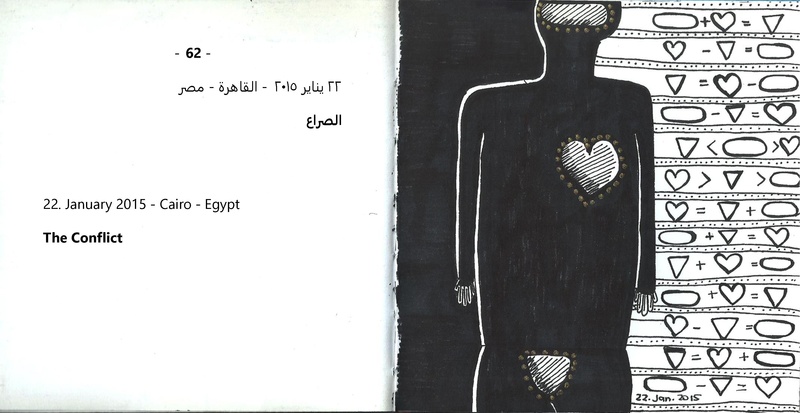 - 62 -
٢٢ يناير ٢٠١٥ - القاهرة - مصر
الصراع
22. January 2015 - Cairo - Egypt
The Conflict
22. Jan. 2015